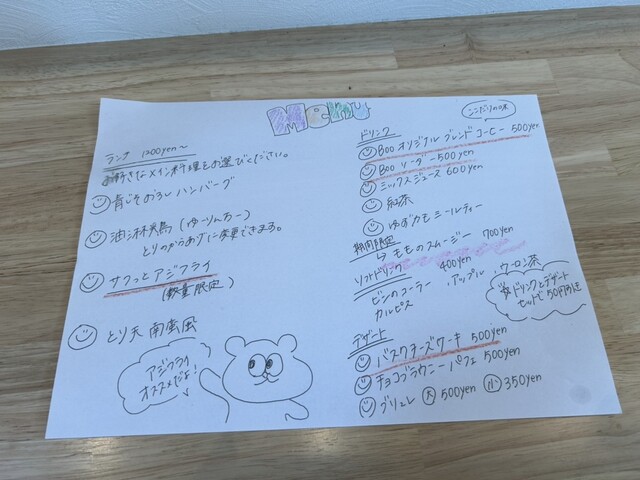 Menu
ランチ 1200yen〜
お好きなメイン料理をお選びください。
青じそおろしハンバーグ
油淋鶏(ゆーりんちー)
とりのからあげに変更できます。
サクっとアジフライ
(数量限定)
とり天南蛮風
アジフライ
オススメだよ!
こだわりの味
ドリンク
Boo オリジナル ブレンドコーヒー 500yen
Boo ソーダー 500yen
ミックスジュース 600yen
紅茶
ゆずカモミールティー
期間限定
↳ もものスムージー 700yen
ソフトドリンク 400yen
ビンのコーラー ・アップル ・ウーロン茶
カルピス
☆ドリンクとデザート
セットで50円引き
デザート
バスクチーズケーキ 500yen
チョコブラウニーパフェ 500yen
ブリュレ 大 500yen 小 350yen